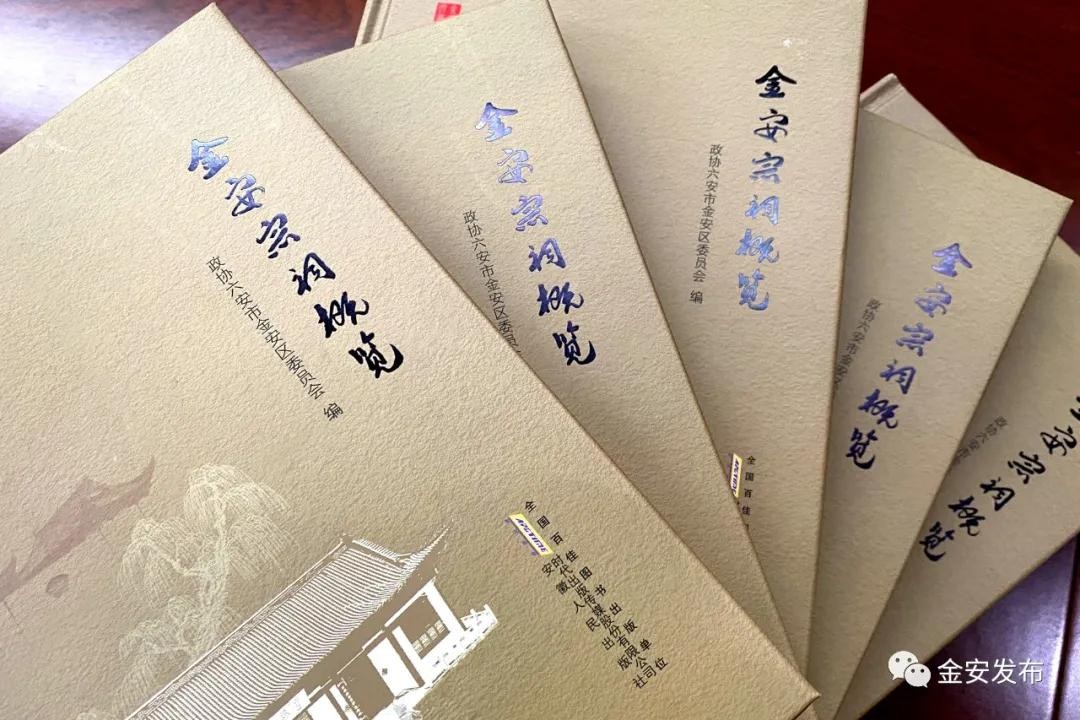 金安宗祠概览
政协六安市金安区委员会 编
全国百佳图书出版单位
时代出版传媒股份有限公司
安徽人民出版社
金安宗祠概览
政协六安市金安区委员
金安宗祠概览
政协六安市金安区委员会 编
全国百佳
金安宗祠概览
政协六安市金安
安宗祠概览
政协六安市
金安发布